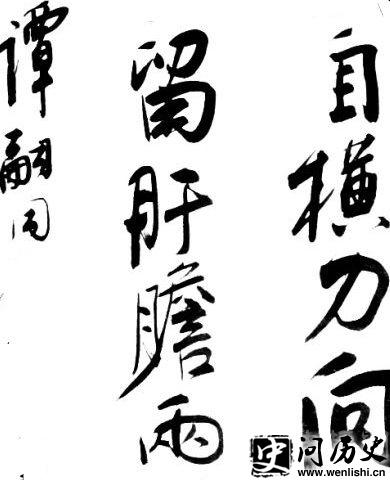 自橫刀向
留肝膽兩
譚嗣同
史问历史
www.wenlishi.cn